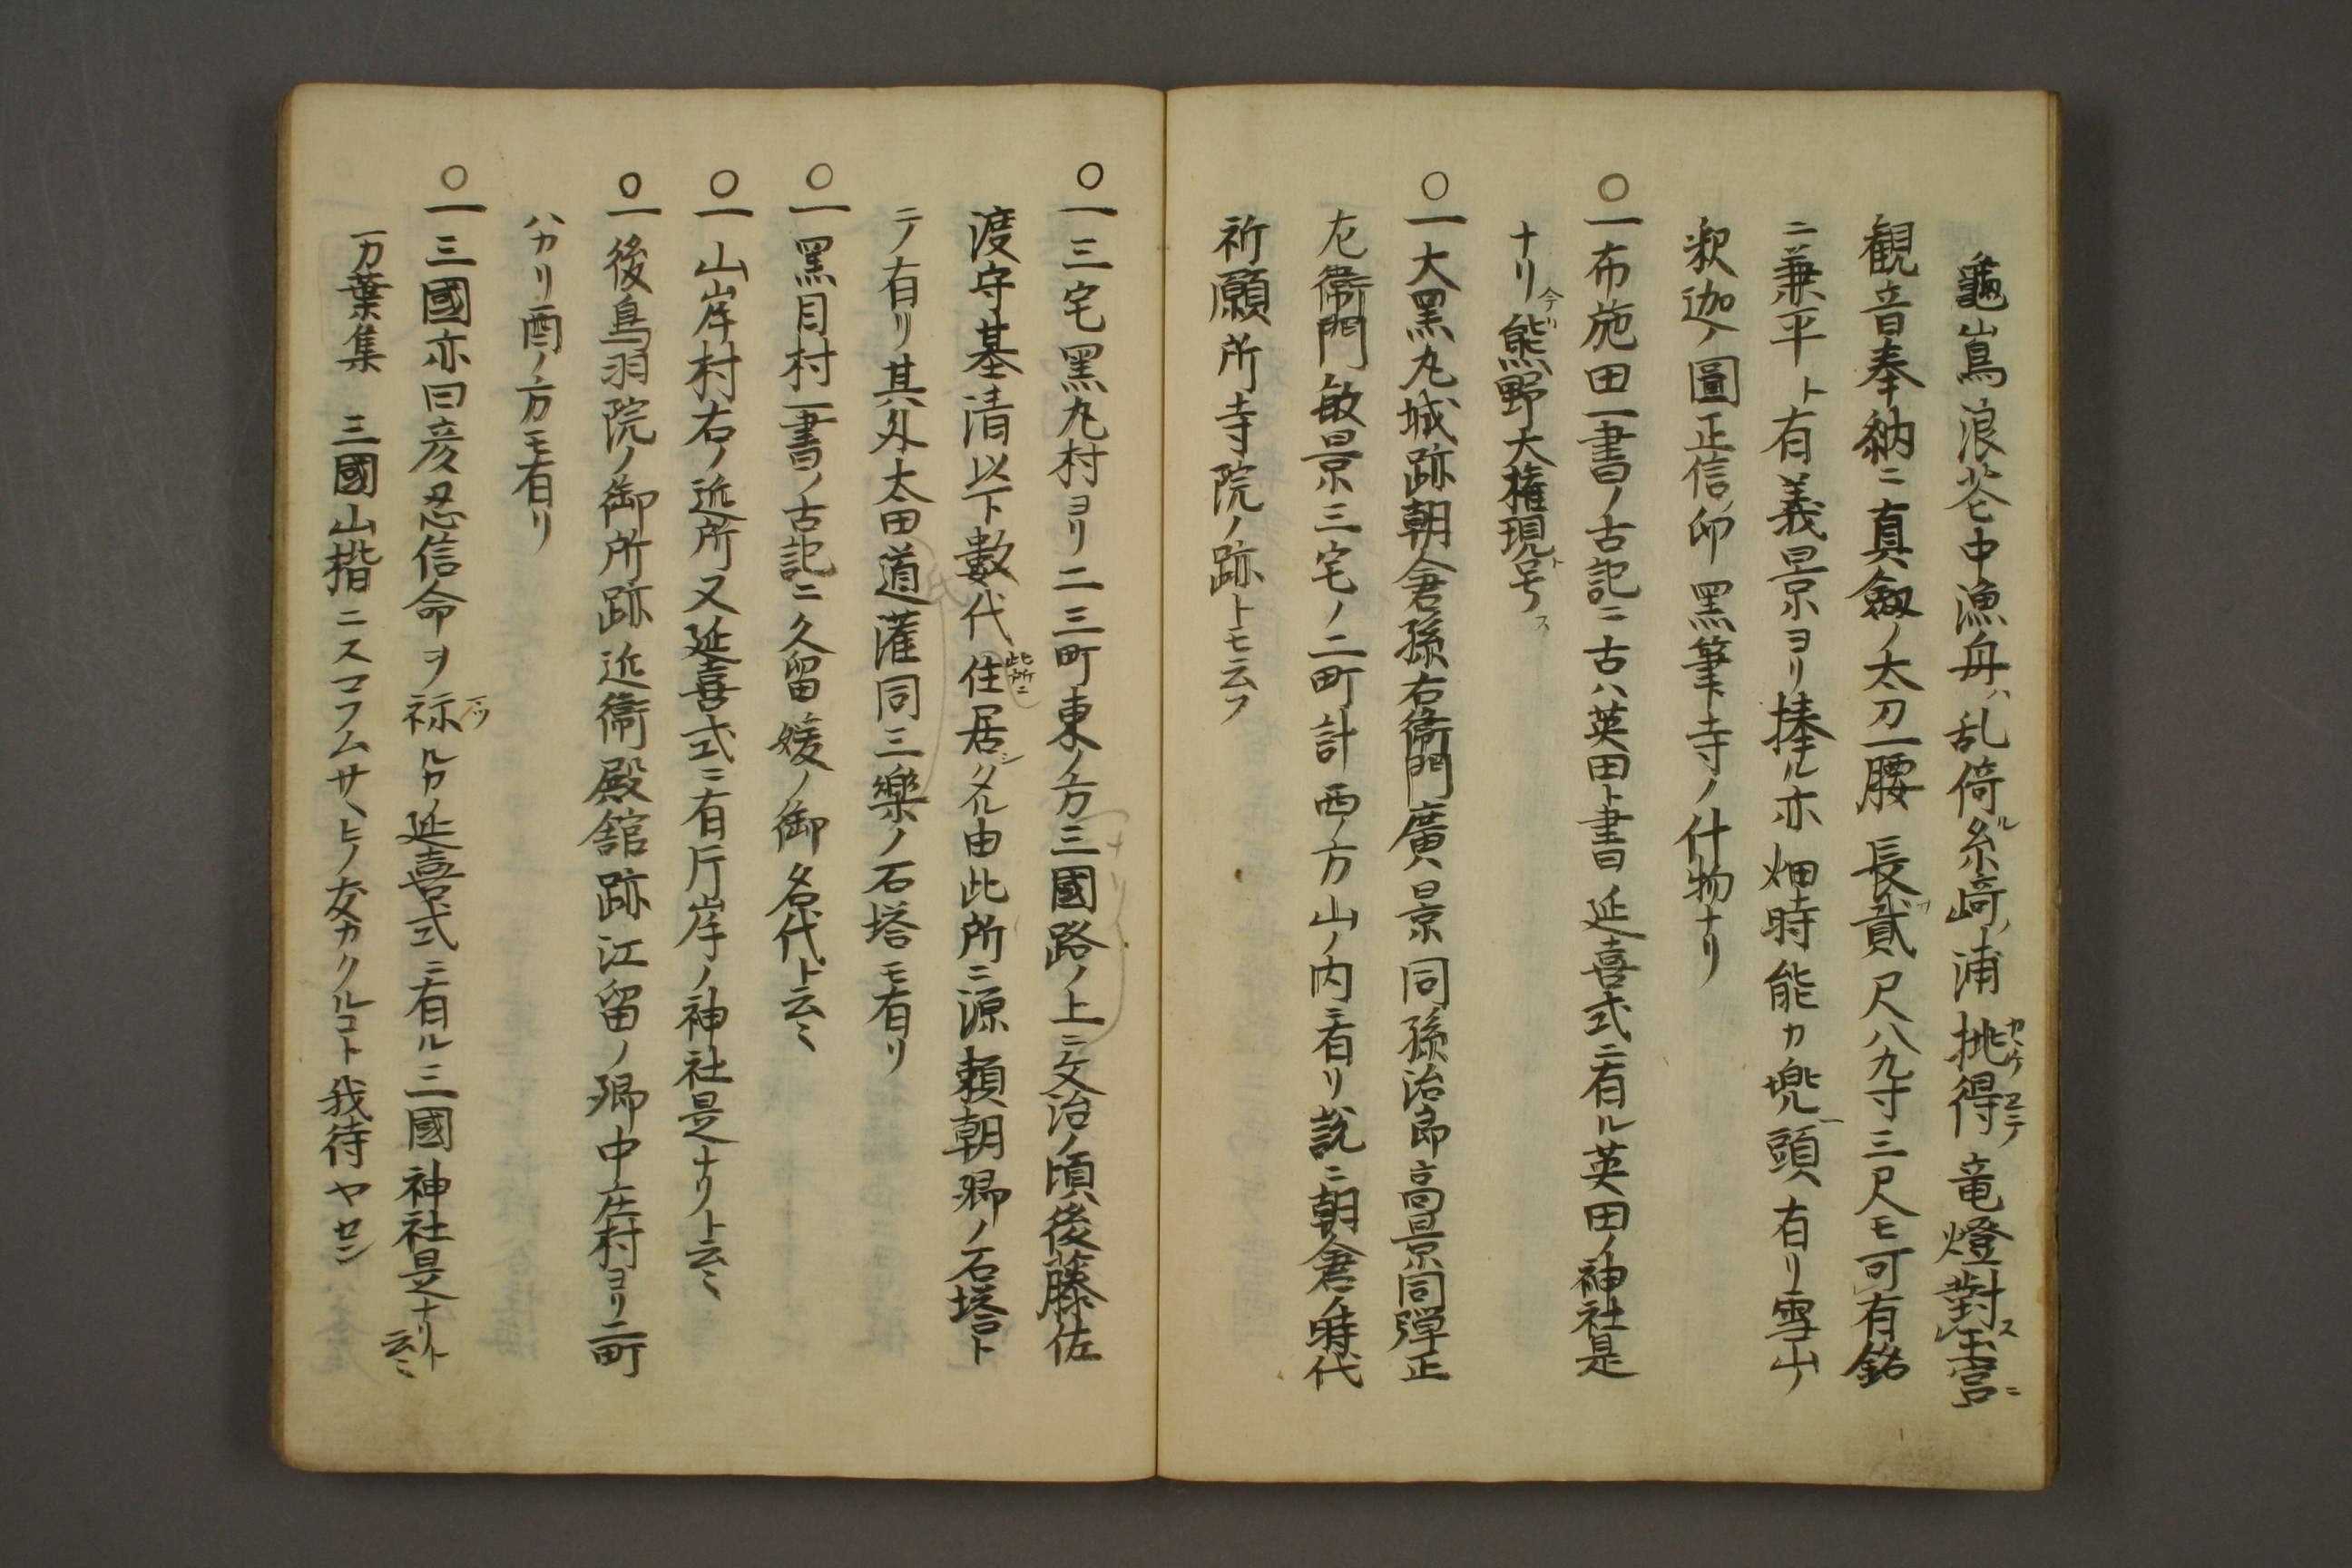 龜嶌浪花中漁舟ハ乱倚ル糸﨑ノ浦挑得カヽケヱテ竜燈對ス玉宮ニ
観音奉納ニ真劔ノ太刀一腰長貳尺八九寸三尺モ可有銘
ニ兼平ト有義景ヨリ捧ル亦畑時能カ兜一頭有リ雪山ノ
釈迦ノ圖正信ノ印黑筆寺ノ什物ナリ
〇一布施田一書ノ古記ニ古ハ英田ト書延喜式ニ有ル英田ノ神社是
ナリ今ハ熊野大権現ト号ス
〇一大黒丸城跡朝倉孫右衞門廣景同孫治郎高景同弾正
左衞門敏景三宅ノ二町計西ノ方山ノ内ニ有リ説ニ朝倉ノ時代
祈願所寺院ノ跡トモ云フ
〇一三宅黒丸村ヨリ二三町東ノ方三國路ノ上ニ文治ノ頃後藤佐
渡守基清以下數代此所ニ住居シタル由此所ニ源頼朝卿ノ石塔ト
テ有リ其外太田道灌同三樂ノ石塔モ有リ
〇一黒目村一書ノ古記ニ久留媛ノ御名代ト云ミ
〇一山岸村右ノ近所又延喜式ニ有片岸ノ神社是ナリト云ミ
〇一後鳥羽院ノ御所跡近衞殿舘跡江留ノ郷中庄村ヨリ二町
ハカリ酉ノ方モ有リ
〇一三國亦曰彦忍信命ヲ祢ルカ延喜式ニ有ル三國神社是ナリト云ミ
万葉集 三國山楷ニスマフムサヽヒノ友カクルコト我待ヤセン